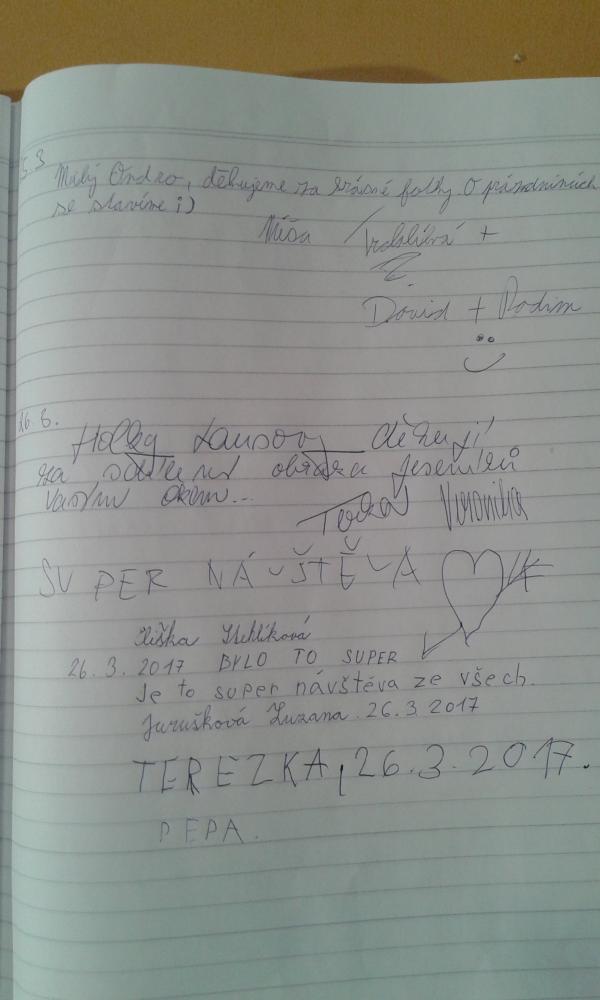 Milý Ondro, děkujeme za krásné fotky O prázdninách
se stavíme ;)
Míša
+
David + Radim
26. 3.
Holky děkují
za sdílení obrazu Jeseníků
Vaším okem...
Terka Veronika
SUPER NÁVŠTĚVA
Eliška
26. 3. 2017 BYLO TO SUPER
Je to super návštěva ze všech.
Jurušková Zuzana. 26.3 2017
TEREZKA, 26.3.2017.
PEPA.